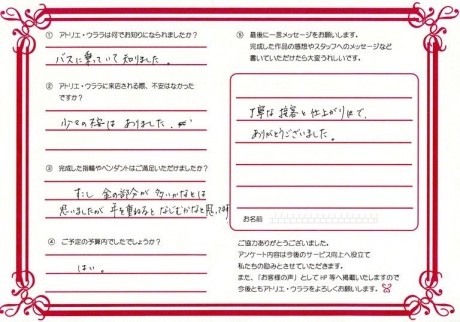 ① アトリエ・ウララは何でお知りになられましたか？
バスに乗っていて知りました。
② アトリエ・ウララに来店される際、不安はなかった
ですか？
少々の不安は ありました。
③ 完成した指輪やペンダントはご満足いただけましたか？
すこし 金の部分が 多いかなとは
思いましたが 年を重ねると なじむかなと思ってます
④ ご予定の予算内でしたでしょうか？
はい。
⑤ 最後に一言メッセージをお願いします。
完成した作品の感想やスタッフへのメッセージなど
書いていただけたら大変うれしいです。
丁寧な 接客と 仕上がり
ありがとうございました。
お名前
ご協力ありがとうございました。
アンケート内容は今後のサービス向上へ役立て
私たちの励みとさせていただきます。
また、「お客様の声」として HP 等へ掲載いたしますので
今後ともアトリエ・ウララをよろしくお願いします。